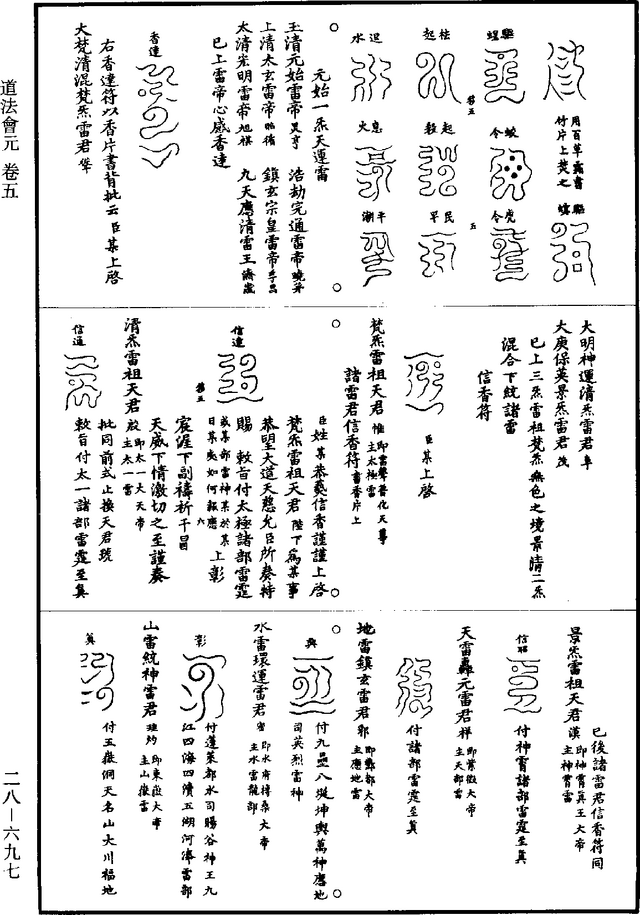 道法會元 卷五
二八—六九七
用百草霜書
竹片上焚之
驅蝗
蛟令
驅蝗
虎令
五
祛起
起穀
民旱
第五
迴水
息火
平潮
元始一炁天運雷
玉清元始雷帝昊亨 浩劫完通雷帝
上清太玄雷帝 鎮玄宗皇雷帝
太清光明雷帝旭祺 九天應清雷王
已上雷帝心感香達
香達
右香達符以香片書背批云臣某上啓
大梵清混梵炁雷君
大明神運清炁雷君阜
大庚保英景炁雷君茂
已上三炁雷祖梵炁無色之境景清二炁
混合下統諸雷
信香符
臣某上啓
梵炁雷祖天君惟 即雷聲普化天尊
主太極雷
諸雷君信香符書香片上
臣姓某恭爇信香謹謹上啓
梵炁雷祖天君 陛下爲某事
恭望大道天慈允臣所奏特
賜 敕旨付太極諸部雷霆
或某部雷神某於某
日某或如何報應 上彰
六
信達
第五
宸渥下副禱祈干冒
天威下情激切之至謹奏
清炁雷祖天君啟 即太一大天帝
主太一雷
批同前式止換天君號
敕旨付太一諸部雷霆至真
信通
已後諸雷君信香符同
景炁雷祖天君漢 即神霄真王大帝
主神霄雷
付神霄諸部雷霆至真
信昭
天雷轟元雷君祥 即紫微大帝
主天部雷
付諸部雷霆至真
地雷鎮玄雷君鄒 即酆都大帝
主應地雷
付九壘八埏坤輿萬神應地
司英烈雷神
興
水雷環運雷君密 即水府扶桑大帝
主水雷龍部
付蓬萊都水司暘谷神王九
江四海四瀆五湖河濟雷部
彰
山雷統神雷君珪灼 即東嶽大帝
主山嶽雷
付五嶽洞天名山大川福地
真